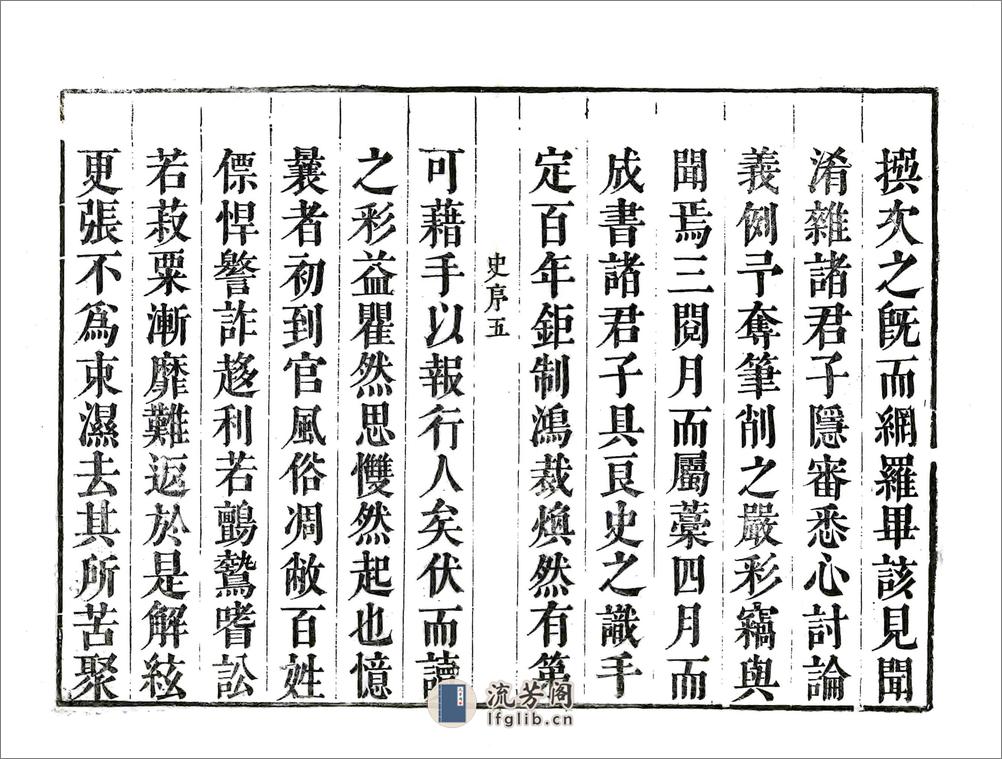 撰次之旣而網羅畢該見聞
淆雜諸君子隱審悉心討論
義例予奪筆削之嚴彩竊與
聞焉三閱月而屬藁四月而
成書諸君子具良史之識手
定百年鉅制鴻裁煥然有第
史序五
可藉手以報行人矣伏而讀
之彩益瞿然思戄然起也憶
曩者初到官風俗凋敝百姓
僄悍譥詐趍利若鸇鷙嗜訟
若菽粟漸靡難返於是解絃
更張不爲束濕去其所苦聚
流芳阁
lfglib.cn